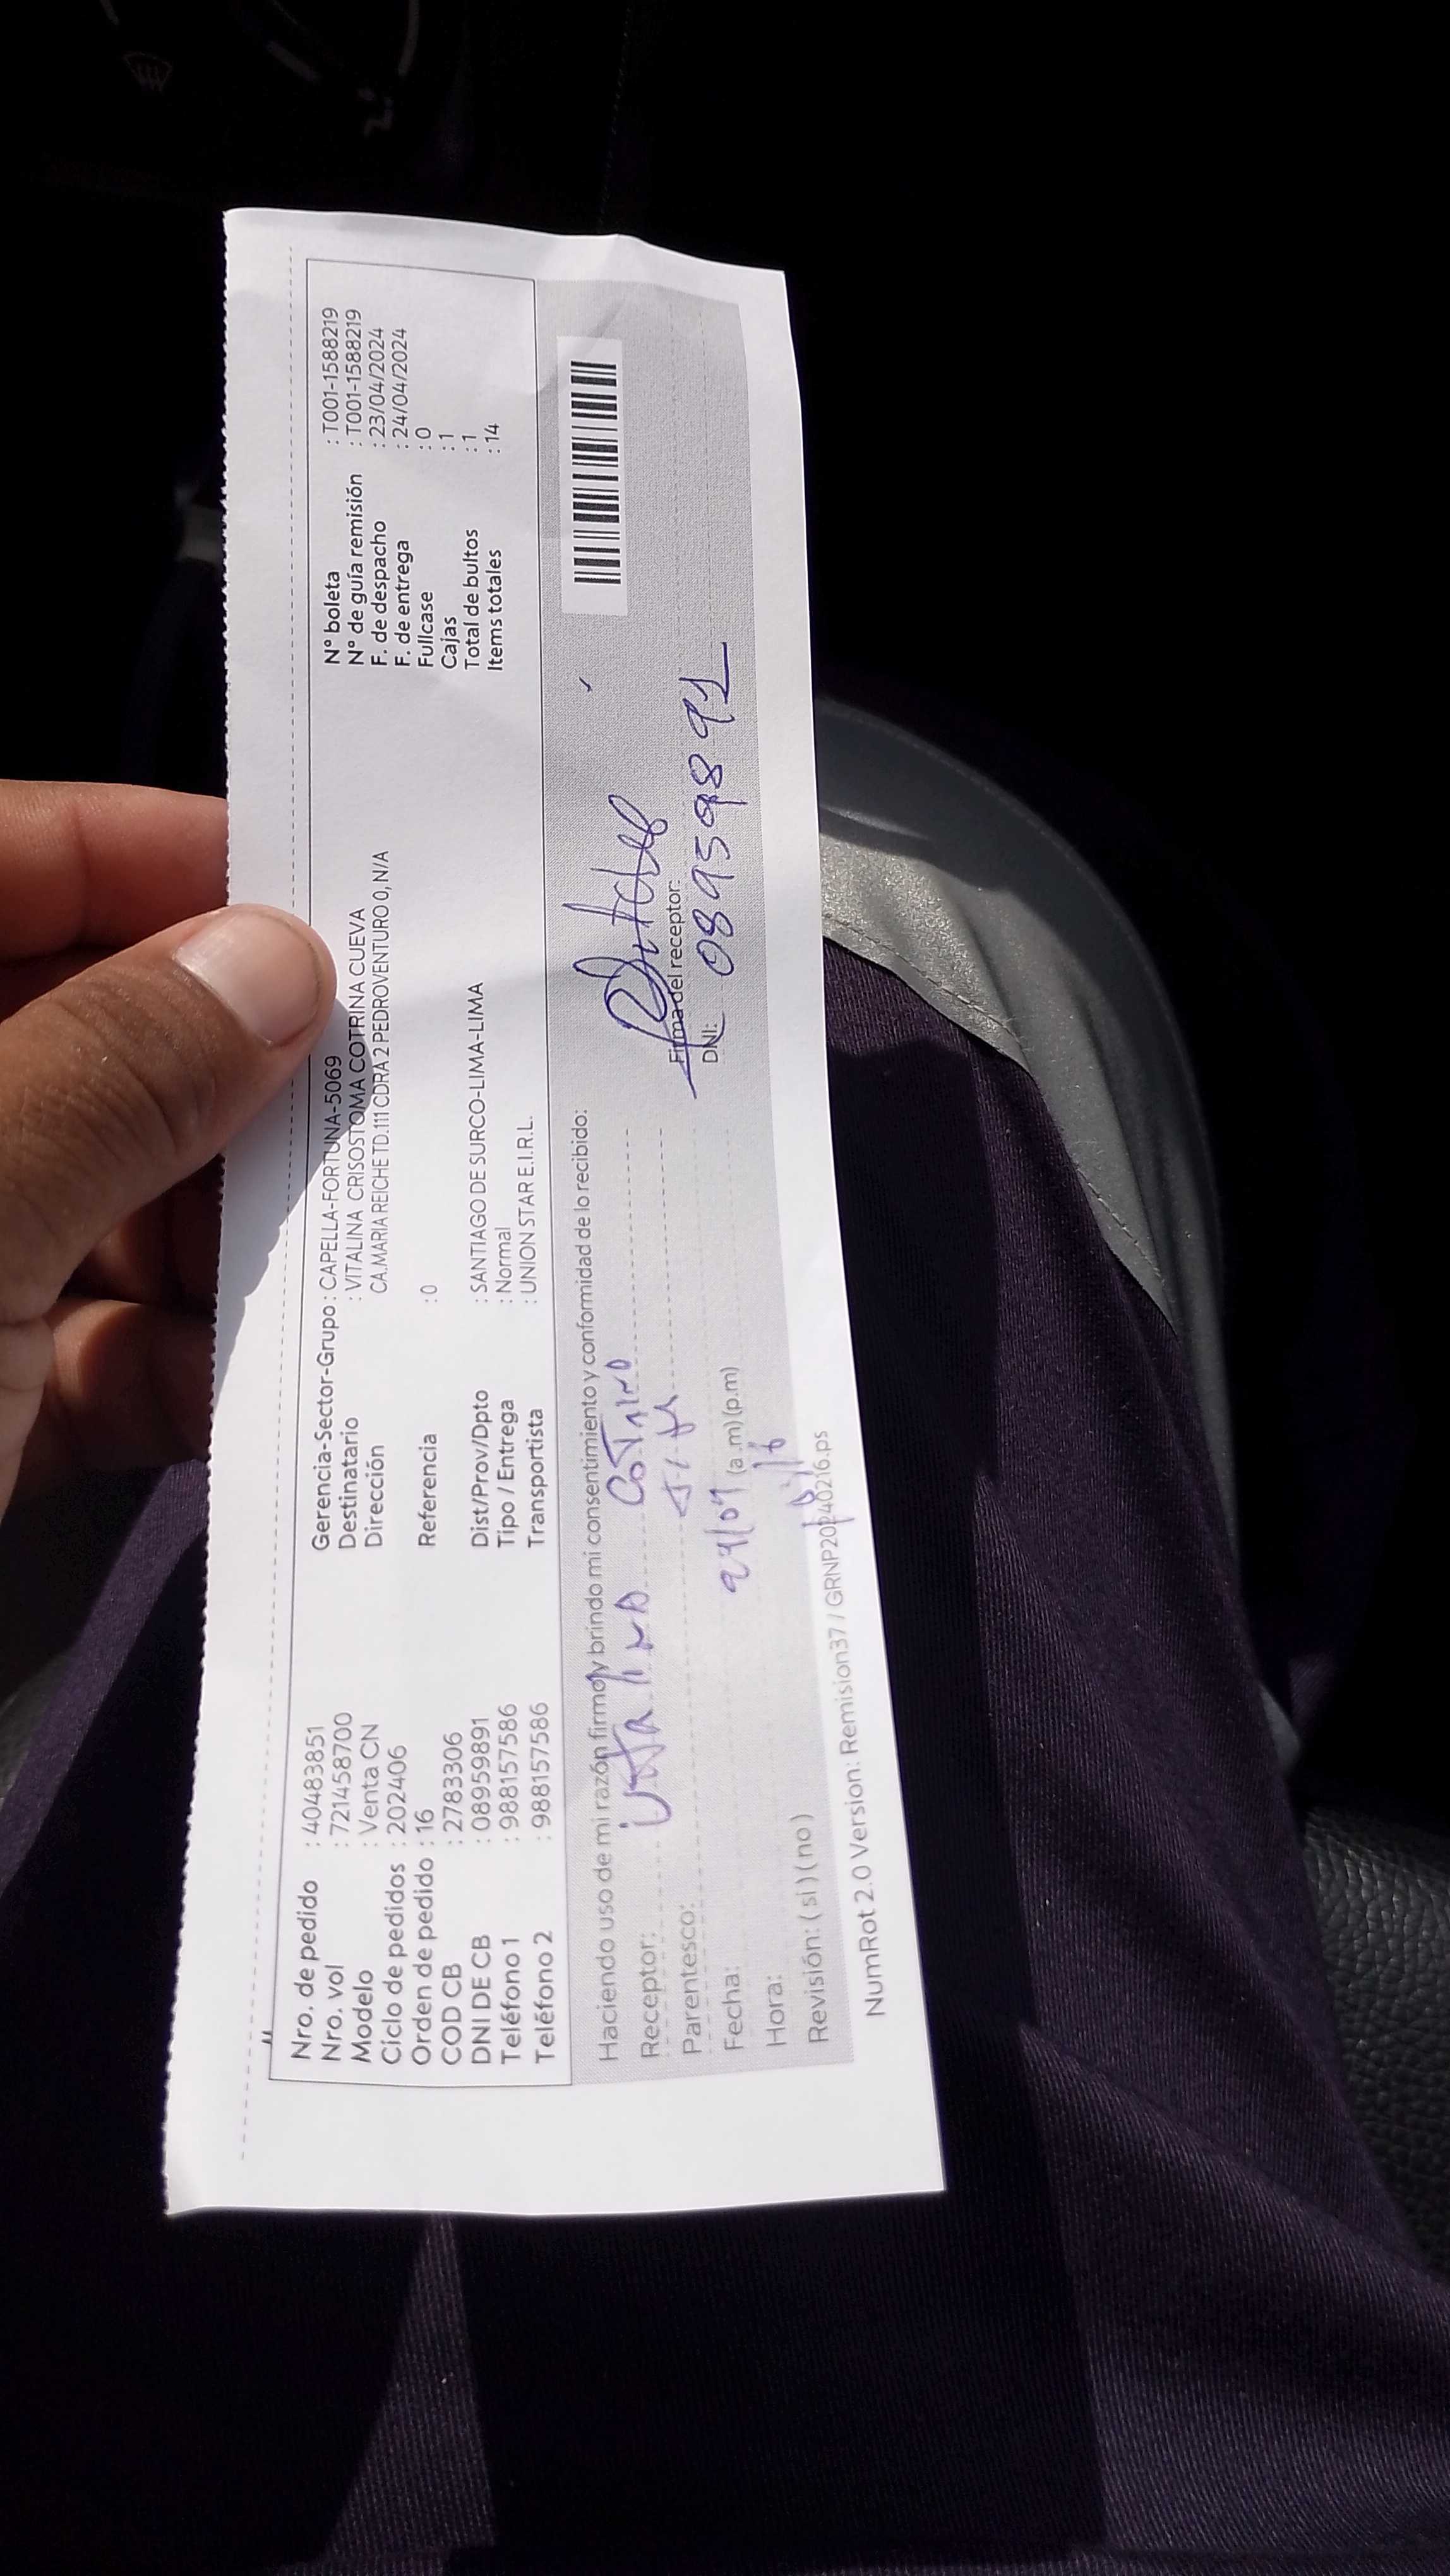 Nro. de pedido : 40483851
Nro. vol : 721458700
Modelo : Venta CN
Ciclo de pedidos : 202406
Orden de pedido : 16
COD CB : 2783306
DNI DE CB : 08959891
Teléfono 1 : 988157586
Teléfono 2 : 988157586
Gerencia-Sector-Grupo : CAPELLA-FORTUNA-5069
Destinatario : VITALINA CRISOSTOMA COTRINA CUEVA
Dirección CA.MARIA REICHE TD.111 CDRA 2 PEDROVENTURO 0, N/A
Referencia : 0
Dist/Prov/Dpto : SANTIAGO DE SURCO-LIMA-LIMA
Tipo / Entrega : Normal
Transportista : UNION STAR E.I.R.L.
N° boleta : T001-1588219
N° de guía remisión : T001-1588219
F. de despacho : 23/04/2024
F. de entrega : 24/04/2024
Fullcase : 0
Cajas : 1
Total de bultos : 1
Items totales : 14
Haciendo uso de mi razón firmo y brindo mi consentimiento y conformidad de lo recibido:
Receptor: Vitalina Cotrina
Parentesco:
Fecha: 24/04
Hora: (a.m) (p.m)
Revisión: ( si ) ( no )
Firma del receptor:
DNI: 08959891
NumRot 2.0 Version: Remision37 / GRNP20240216.ps